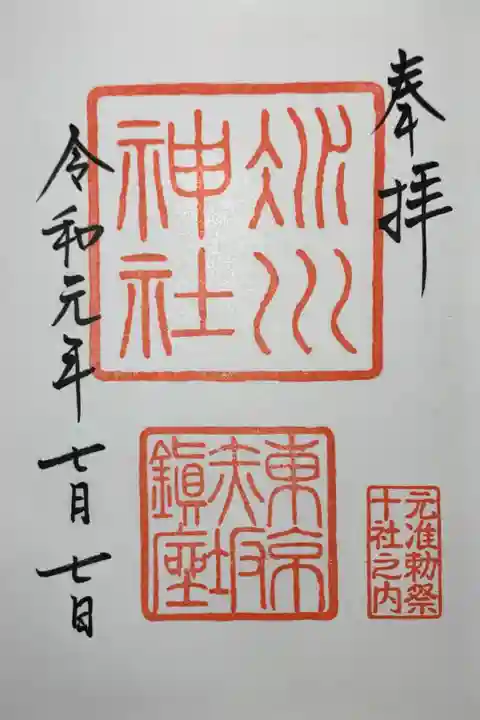 奉拝
氷川
神社
東京
赤坂
鎮座
元准勅祭
十社之内
令和元年七月七日